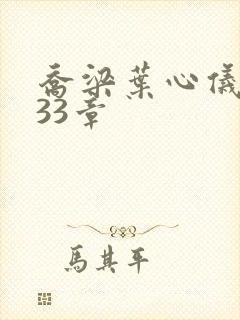 喬梁葉心儀
33章
馬其平